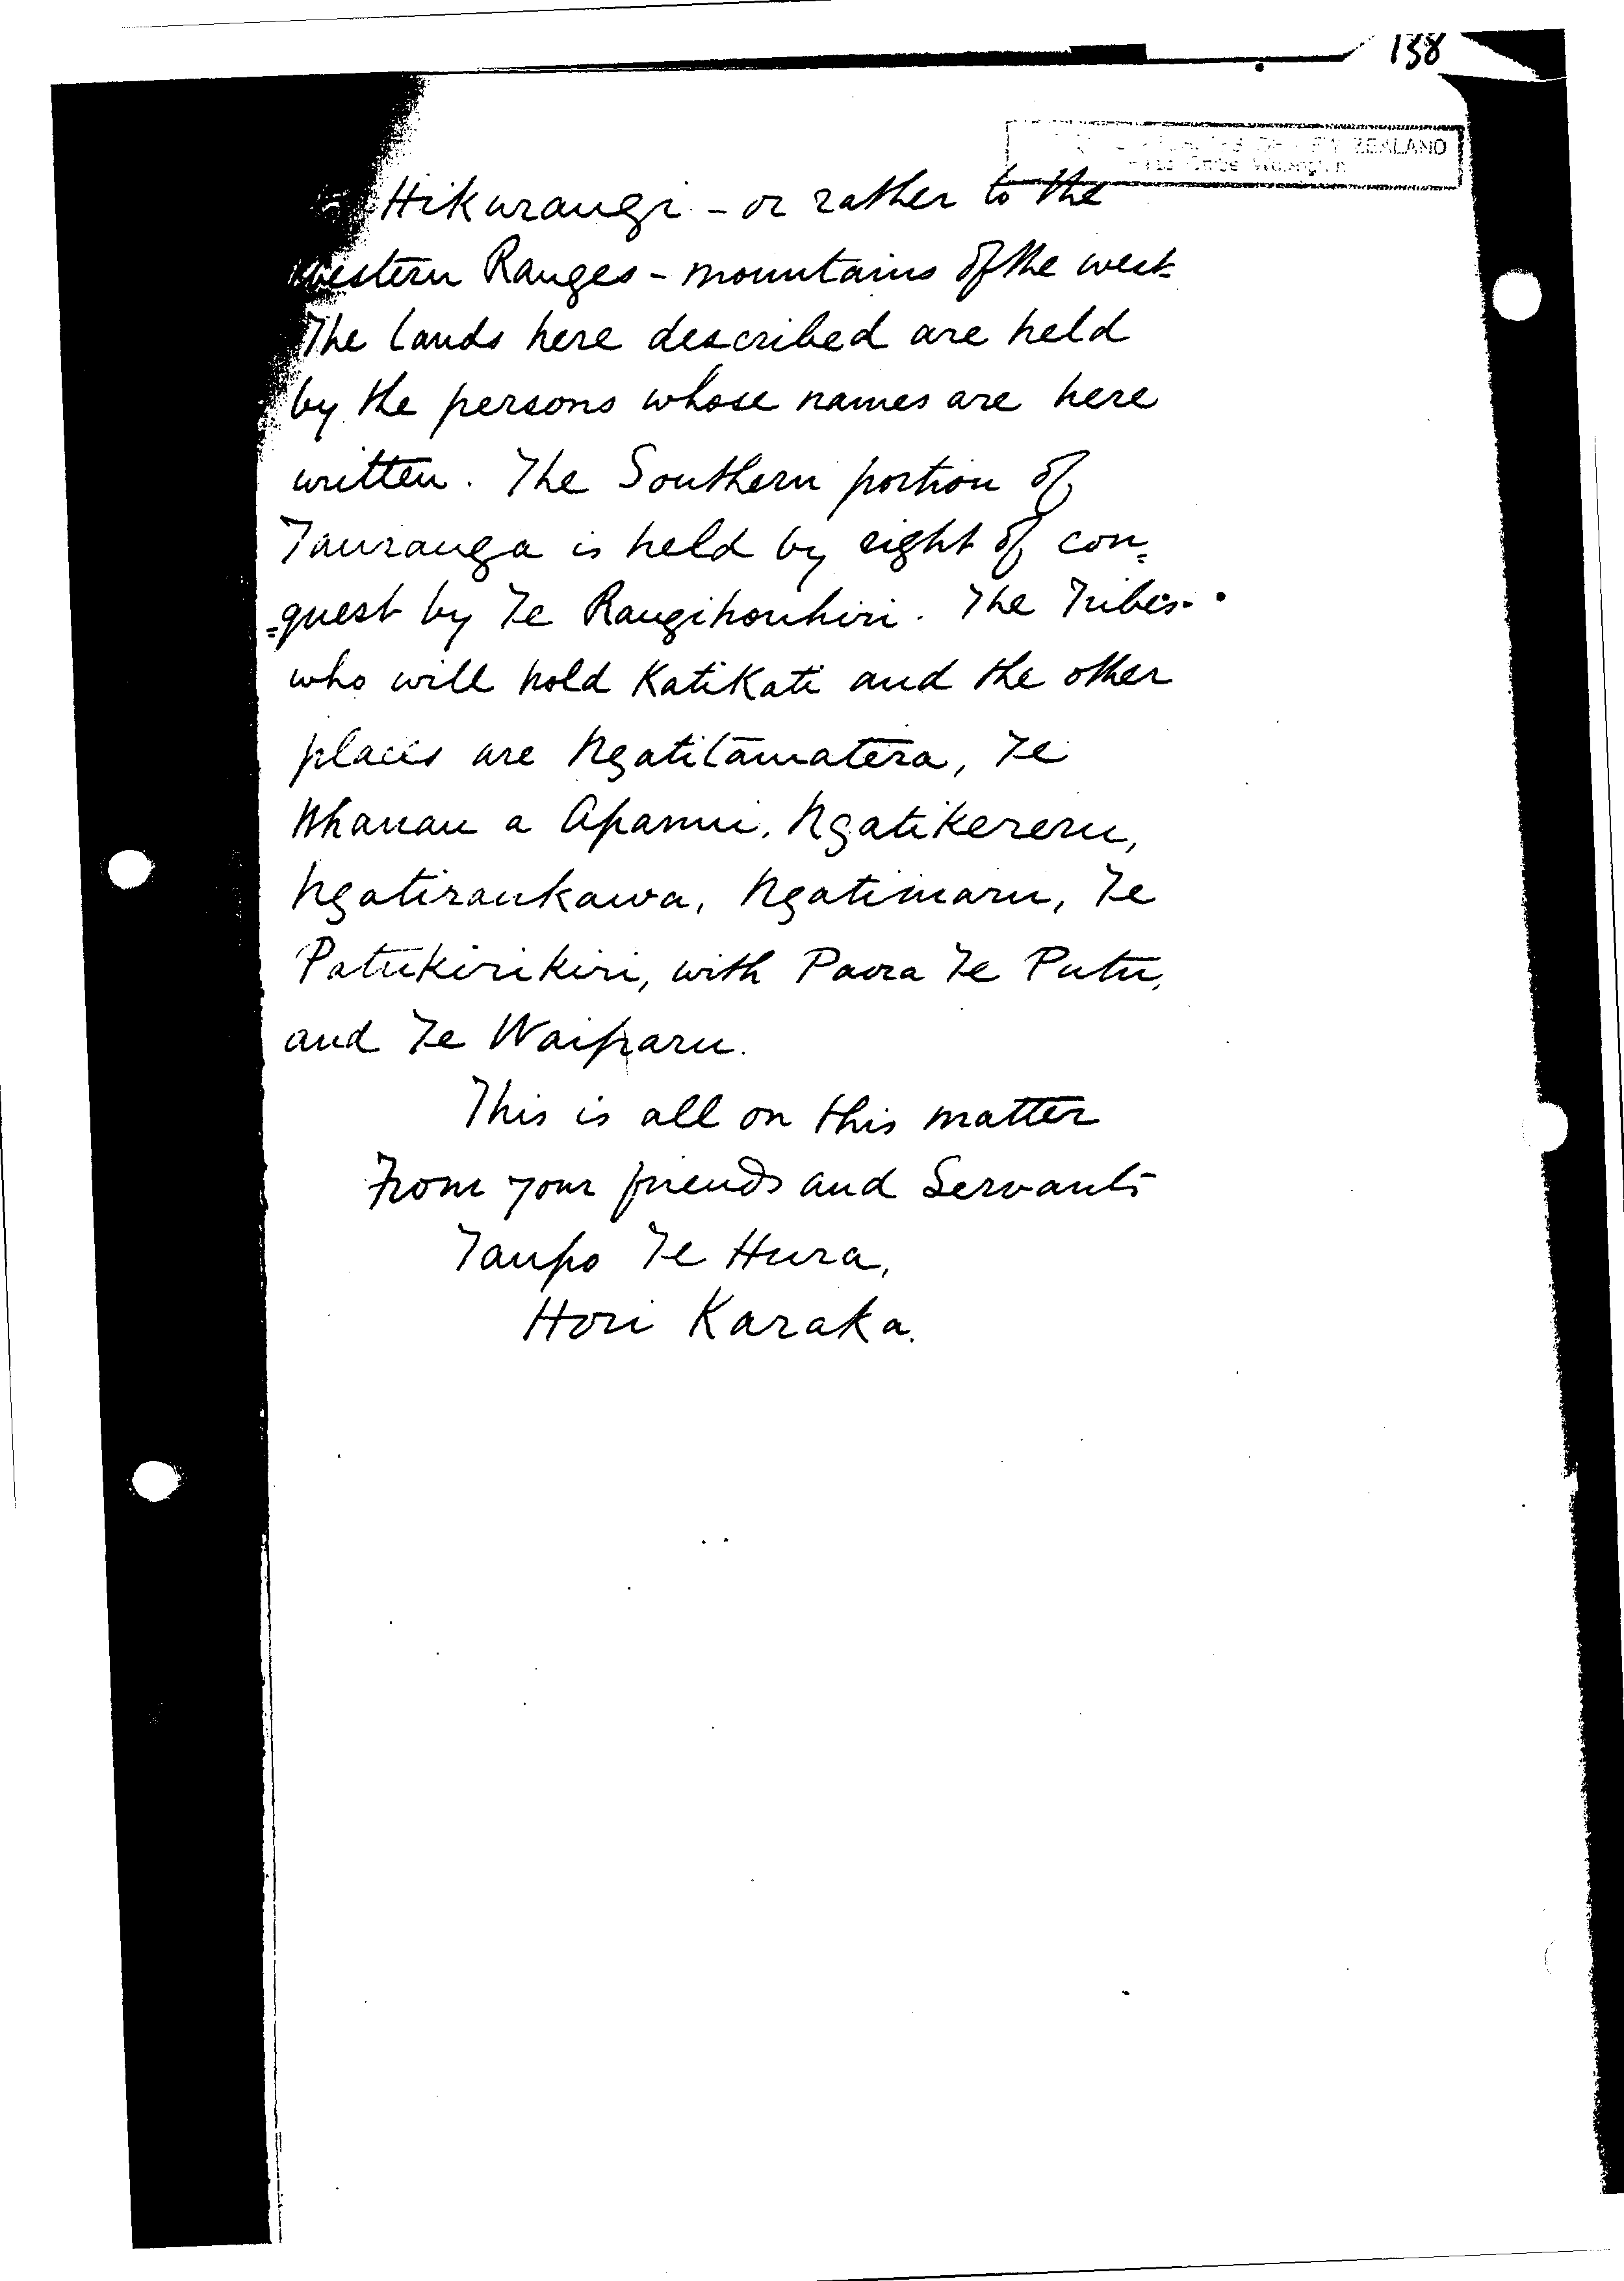 138
ZEALAND
Hikurangi - or rather to the
Western Ranges - mountains of the west.
The lands here described are held
by the persons whose names are here
written. The Southern portion of
Tauranga is held by right of con=
=quest by Te Rangihouhiri. The Tribes
who will hold Katikati and the other
places are Ngatitamatera, Te
Whanau a Apanui, Ngatikereru,
Ngatiraukawa, Ngatimaru, Te
Patukirikiri, with Paora Te Putu,
and Te Waiparu.
This is all on this matter
From your friends and Servants
Taupo Te Hura,
Hori Karaka.